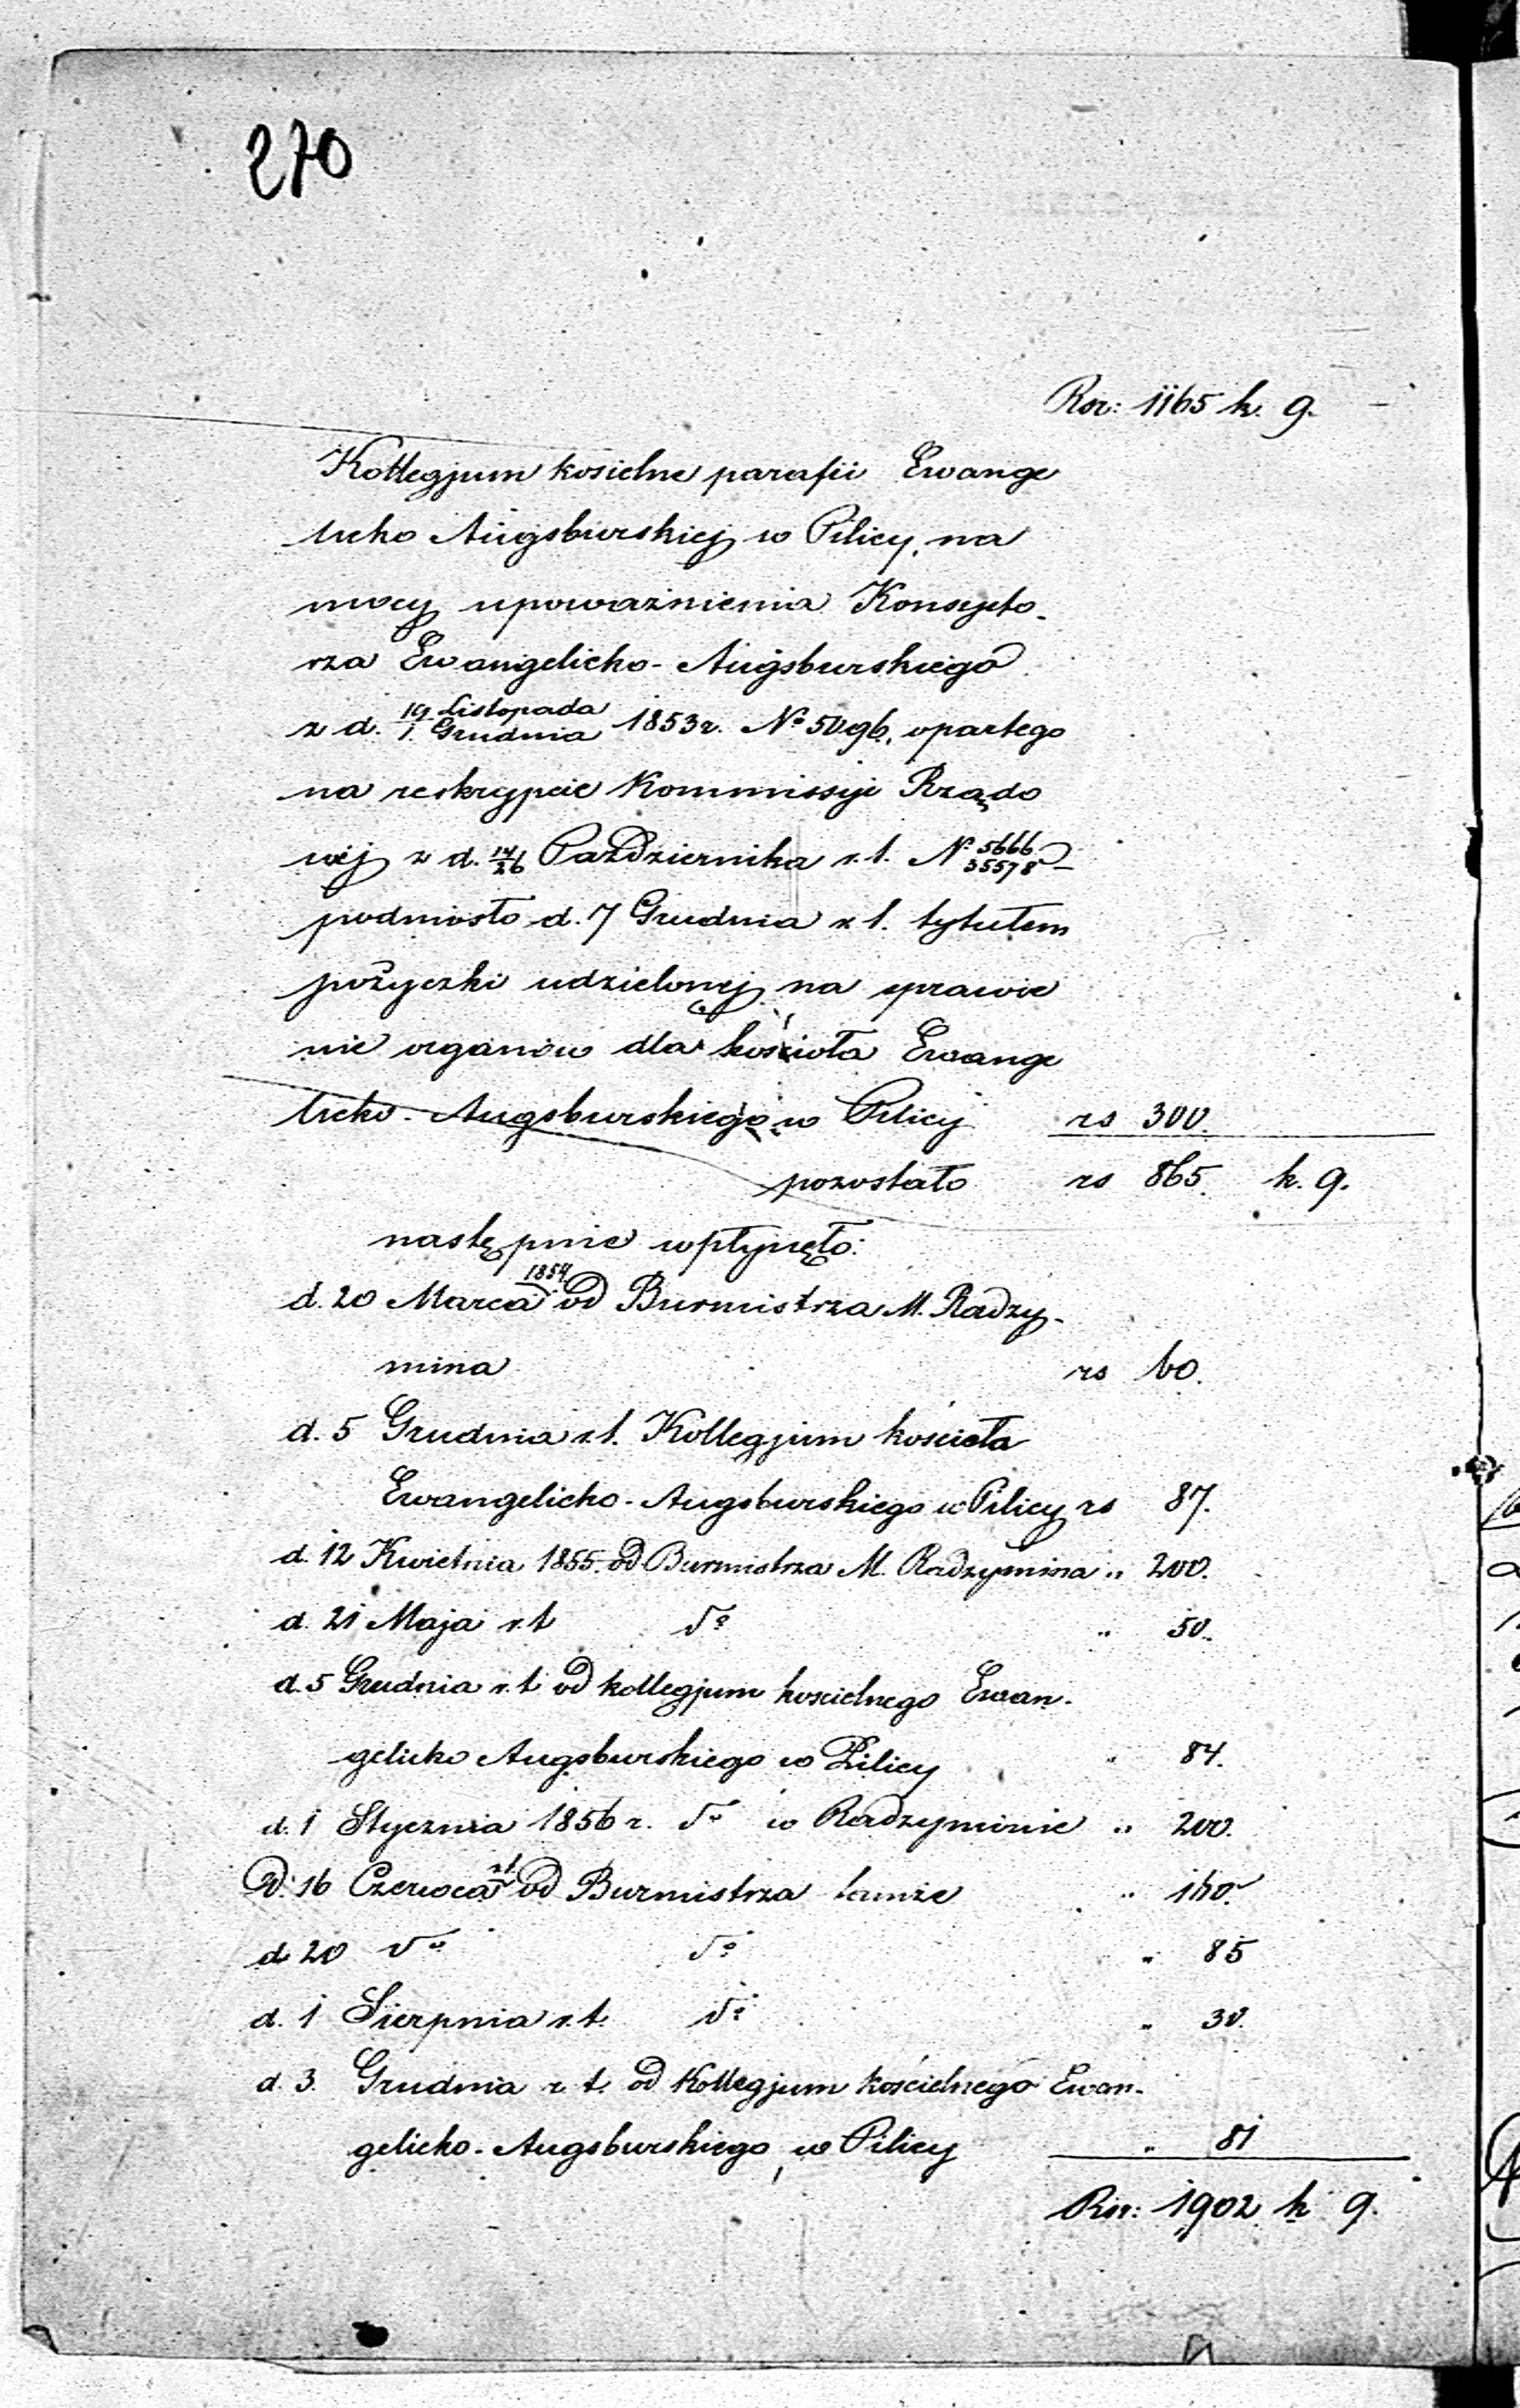 270
Rsr: 1165 k. 9.
Kollegjum kosielne parafii Ewange
licko Augsburskiej w Pilicy, na
mocy upoważnienia Konsysto-
rza Ewangelicko-Augsburskiego
z d. 19 Listopada / 1. Grudnia 1853 r. No 5096, opartego
na reskrypcie Kommissyi Rządo
wej z d. 14/26 Października r.t. No 5666/35578
podniosło d. 7 Grudnia r.t. tytułem
pożyczki udzielonej na sprawie
nie organów dla kościoła Ewange
licko-Augsburskiego w Pilicy rs 300.
pozostało rs 865. k. 9.
następnie wpłynęło:
d. 20 Marca 1854 od Burmistrza M. Radzy-
mina rs 60.
d. 5 Grudnia r.t. Kollegjum kościoła
Ewangelicko-Augsburskiego w Pilicy rs 87.
d. 12 Kwietnia 1855. od Burmistrza M. Radzymina " 200.
d. 21 Maja r.t do " 50.
d. 5 Grudnia r.t od kollegjum koscielnego Ewan-
gelicko Augsburskiego w Pilicy " 84.
d. 1 Stycznia 1856 r. do w Radzyminie " 200.
D. 16 Czerwca r.t. od Burmistrza tamże " 160.
d 20 do do " 85
d. 1 Sierpnia r.t. do " 30.
d. 3. Grudnia r.t. od Kollegjum kościelnego Ewan-
gelicko-Augsburskiego w Pilicy " 81
Rsr: 1902 k 9.